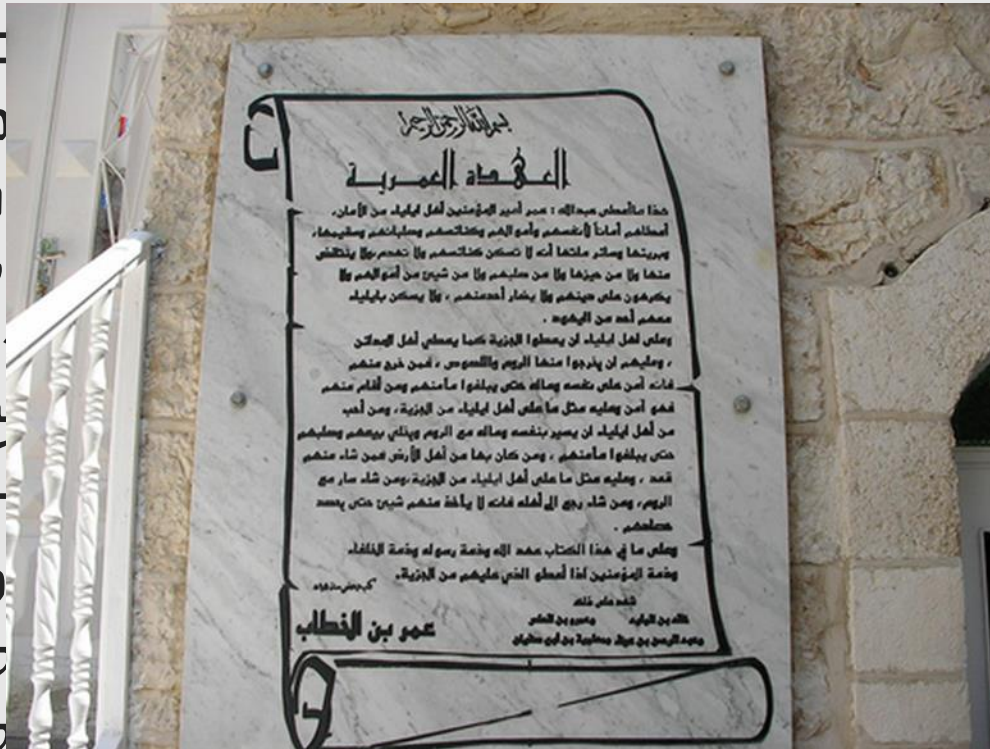 بسم الله الرحمن الرحيم
العهدة العمرية
هذا ما أعطى عبدالله : عمر أمير المؤمنين أهل ايلياء من الأمان،
أعطاهم أماناً لأنفسهم وأموالهم وكنائسهم وصلبانهم وسقيمها،
وبريئها وسائر ملتها أنه لا تسكن كنائسهم ولا تهدم، ولا ينتقض
منها ولا من حيزها ولا من صلبهم ولا من شيئ من أموالهم ولا
يكرهون على دينهم ولا يضار أحدمنهم ، ولا يسكن بايلياء
معهم أحد من اليهود .
وعلى اهل ايلياء ان يعطوا الجزية كما يعطي أهل المدائن
، وعليهم ان يخرجوا منها الروم واللصوص ، فمن خرج منهم
فانه آمن على نفسه وماله حتى يبلغوا مأمنهم ومن أقام منهم
فهو آمن وعليه مثل ما على أهل ايلياء من الجزية، ومن أحب
من أهل ايلياء ان يسير بنفسه وماله مع الروم ويخلي بيعهم وصلبهم
حتى يبلغوا مأمنهم ، ومن كان بها من أهل الأرض فمن شاء منهم
قعد ، وعليه مثل ما على أهل ايلياء من الجزية، ومن شاء سار مع
الروم، ومن شاء رجع الى أهله فانه لا يأخذ منهم شيئ حتى يحصد
حصادهم .
وعلى ما في هذا الكتاب عهد الله وذمة رسوله وذمة الخلفاء
وذمة المؤمنين اذا أعطو الذي عليهم من الجزية.
شهد على ذلك
خالد بن الوليد وعمرو بن العاص
وعبد الرحمن بن عوف ومعاوية بن أبي سفيان
عمر بن الخطاب